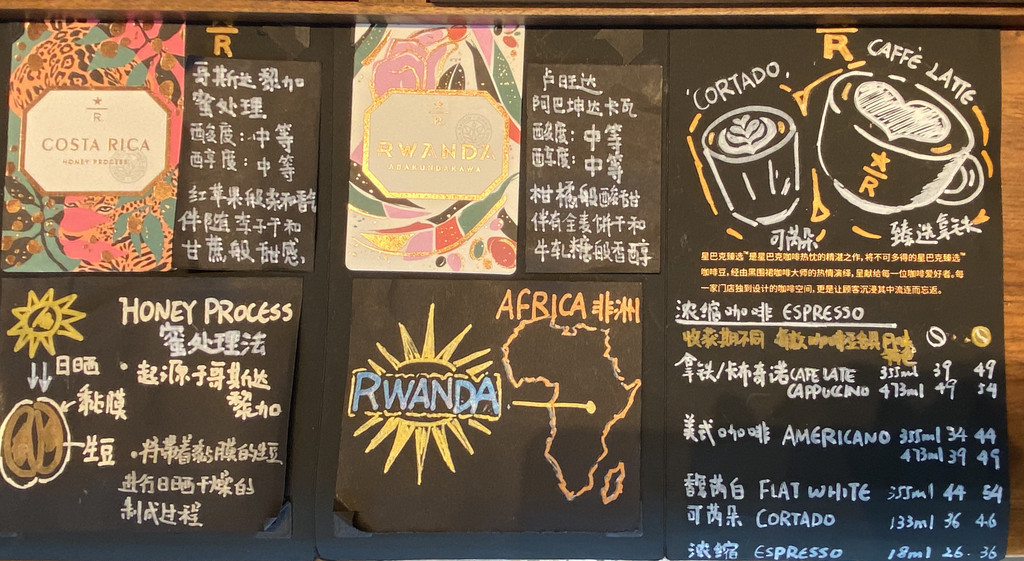 R
COSTA RICA
HONEY PROCESS
哥斯达黎加
蜜处理
酸度:中等
醇度:中等
红苹果般柔和酸
伴随李子干和
甘蔗般甜感,
R
RWANDA
ABAKUNDAKAWA
卢旺达
阿巴坤达卡瓦
酸度:中等
醇度:中等
柑橘般酸甜
伴有全麦饼干和
牛轧糖般香醇
R
CORTADO.
CAFFÈ LATTE
R
可芮朵
臻选拿铁
星巴克臻选™是星巴克咖啡热忱的精湛之作,将不可多得的星巴克臻选™
咖啡豆,经由黑围裙咖啡大师的热情演绎,呈献给每一位咖啡爱好者。每
一家门店独到设计的咖啡空间,更是让顾客沉浸其中流连而忘返。
HONEY PROCESS
蜜处理法
日晒
黏膜
生豆
·起源于哥斯达
黎加
·将带着黏膜的生豆
进行日晒干燥的
制成过程
AFRICA 非洲
RWANDA
浓缩咖啡 ESPRESSO
收获期不同 每款咖啡轻会具
拿铁/卡布奇诺 CAFE LATE 355ml 39 49
CAPPUCCINO 473ml 49 54
美式咖啡 AMERICANO 355ml 34 44
473ml 39 49
馥芮白 FLAT WHITE 355ml 44 54
可芮朵 CORTADO 133ml 36 46
浓缩 ESPRESSO 18ml 26. 36